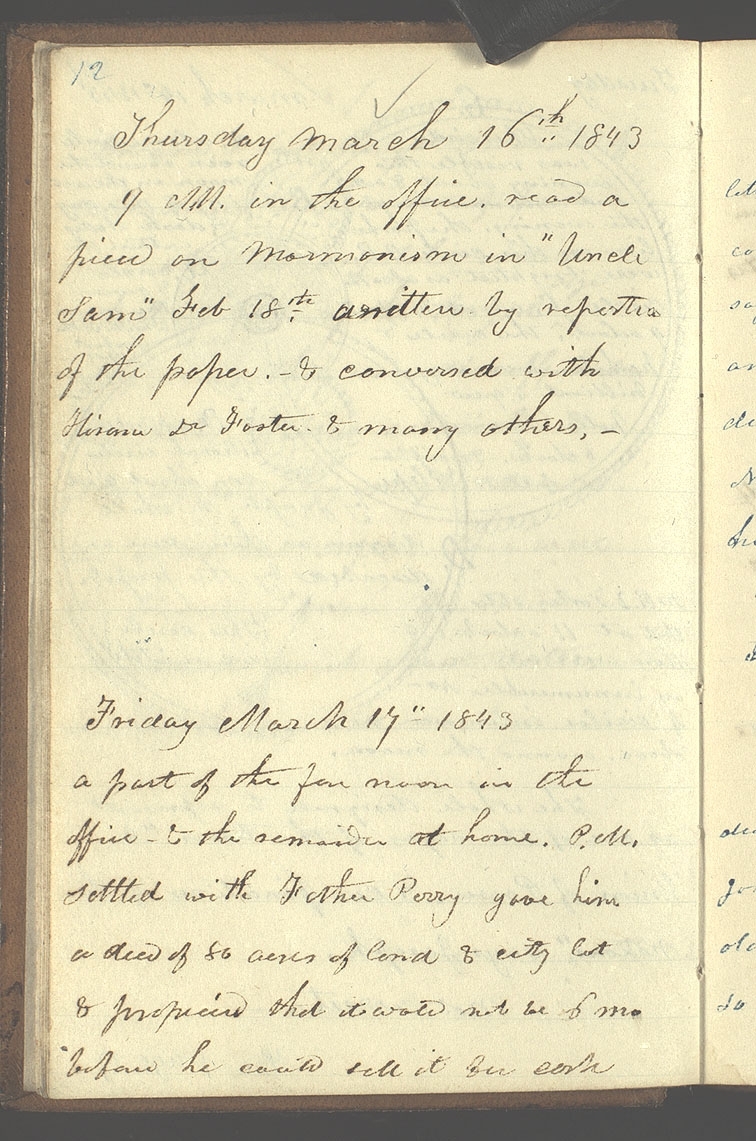 12
Thursday march 16th 1843
9 AM. in the office. read a
piece on Mormonism in "Uncle
Sam" Feb 18th written by reporters
of the paper. - & conversed with
Hiram Dr Foster. & many others, -
Friday March 17" 1843
a part of the fore noon in the
office - & the remainder at home. P.M.
settled with Father Perry gave him
a deed of 80 acres of land & city lot
& prophecied that it would not be 6 mo
before he could sell it for cash